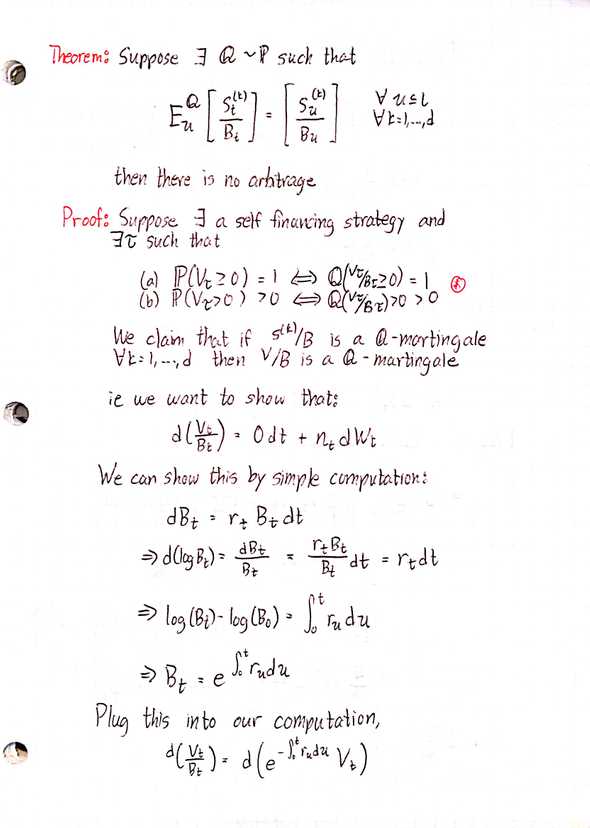 Theorem: Suppose ∃ Q ~ P such that
E_u^Q [ S_t^(k) / B_t ] = [ S_u^(k) / B_u ] ∀ u≤t ∀ k=1,...,d
then there is no arbitrage
Proof: Suppose ∃ a self financing strategy and
∃τ such that
(a) P(V_τ ≥ 0) = 1 ⟺ Q(V_τ/B_τ ≥ 0) = 1
(b) P(V_τ > 0) > 0 ⟺ Q(V_τ/B_τ) > 0 > 0
We claim that if S^(k)/B is a Q-martingale
∀k=1,...,d then V/B is a Q-martingale
ie we want to show that:
d(V_t/B_t) = 0dt + η_t dW_t
We can show this by simple computation:
dB_t = r_t B_t dt
⇒ d(log B_t) = dB_t/B_t = r_t B_t/B_t dt = r_t dt
⇒ log(B_t) - log(B_0) = ∫_0^t r_u du
⇒ B_t = e^{∫_0^t r_u du}
Plug this into our computation,
d(V_t/B_t) = d(e^{-∫_0^t r_u du} V_t)